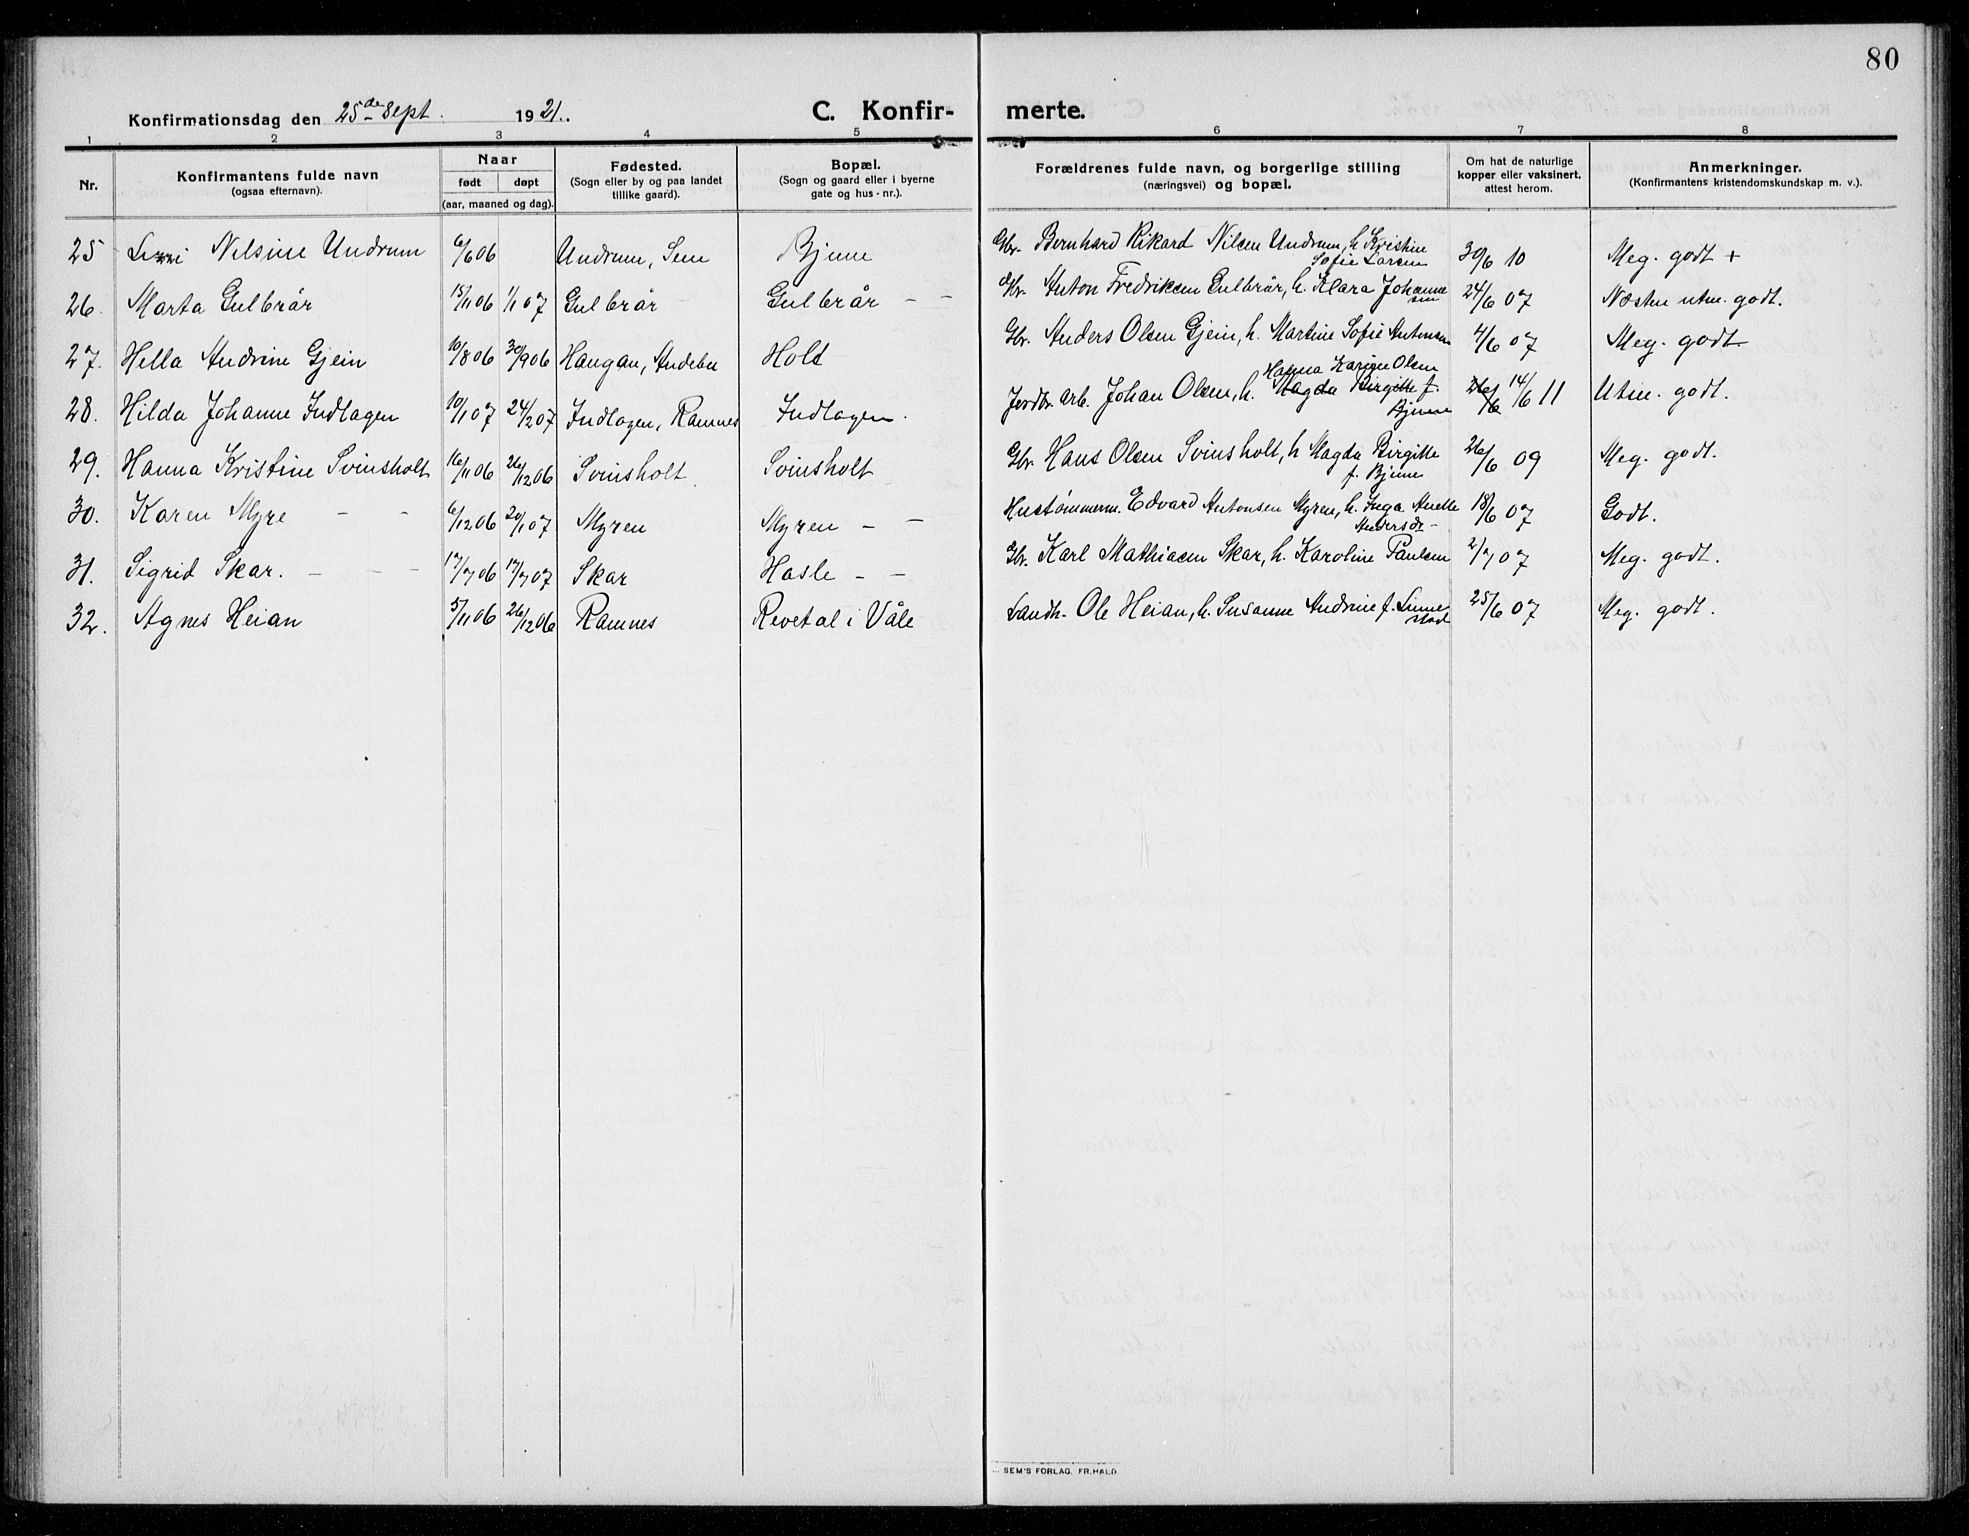 80
Konfirmationsdag den 25de Sept. 1921.
C. Konfir- merte.
1 2 3 4 5 6 7 8
Nr.
Konfirmantens fulde navn
(ogsaa efternavn).
Naar
født døpt
(aar, maaned og dag).
Fødested.
(Sogn eller by og paa landet
tillike gaard).
Bopæl.
(Sogn og gaard eller i byerne
gate og hus-nr.).
Forældrenes fulde navn, og borgerlige stilling
(næringsvei) og bopæl.
Om hat de naturlige
kopper eller vaksinert,
attest herom.
Anmerkninger.
(Konfirmantens kristendomskundskap m. v.).
25 Nilsine Undrum 6/6 06 Undrum, Sem Bjune Gbr. Bernhard Rikard Nilsen Undrum, h. Kristine
Sofie Larsen 30/6 10 Meg. godt +
26. Marta Gulbrår 15/11 06 1/1 07 Gulbrår Gulbrår – – Gbr. Anton Fredriksen Gulbrår, h. Klara Johanne
sen 24/6 07 Næsten utm. godt.
27. Hella Andrine Gjein 10/8 06 30/9 06 Haugan, Andebu Holt Gbr. Anders Olsen Gjein, h. Martine Sofie Antonsen 4/6 07 Meg. godt
28. Hilda Johanne Indlagen 10/1 07 24/2 07 Indlagen, Ramnes Indlagen. Jordbr. arb. Johan Olsen, h. Magda Birgitte f.
Hanna Karine Olsen
Bjune 26/6 14/6 11 Utm. godt.
29. Hanna Kristine Svinsholt 16/11 06 26/12 06 Svinsholt. Svinsholt Gbr. Hans Olsen Svinsholt, h. Magda Birgitte
f. Bjune 26/6 09 Meg. godt.
30. Karen Myre – – 6/12 06 20/1 07 Myren Myren – – Hustømmerm. Edvard Antonsen Myren, h. Inga Anette
Andersdr – 18/6 07 Godt.
31. Sigrid Skar. – – – 17/7 06 17/7 07 Skar Hasle – – Gbr. Karl Mathiasen Skar, h. Karoline Paulsen 2/7 07 Meg. godt.
32. Agnes Heian 5/11 06 26/12 06 Ramnes Revetal i Våle Landh. Ole Heian, h. Susanne Andrine f. Linne
stad 25/6 07 Meg. godt.
SEM'S FORLAG. FR. HALD.